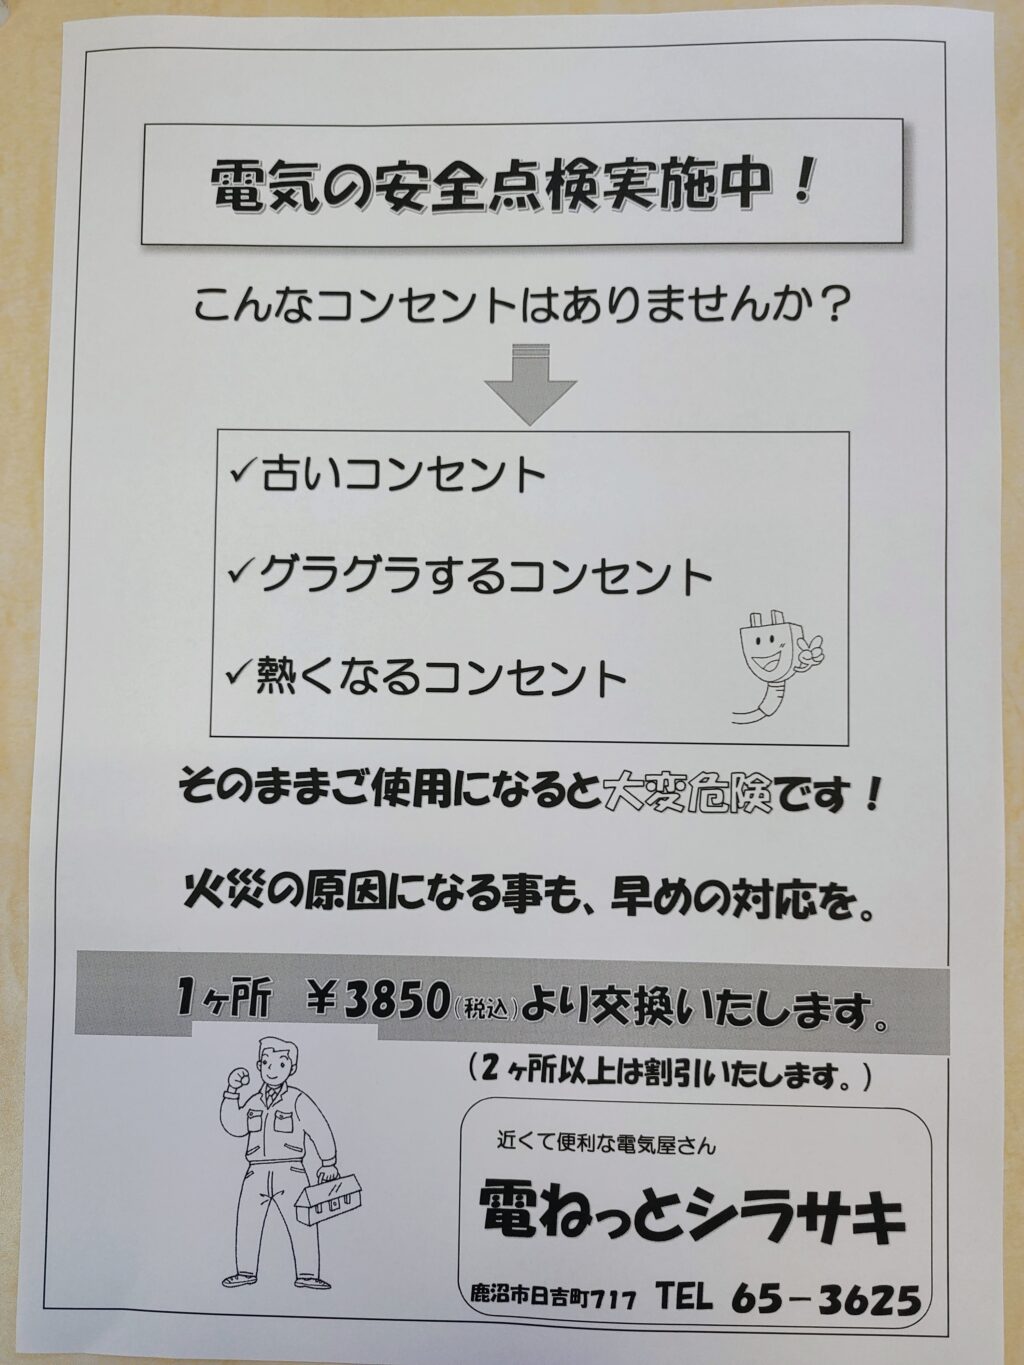 電気の安全点検実施中！
こんなコンセントはありませんか？
✓古いコンセント
✓グラグラするコンセント
✓熱くなるコンセント
そのままご使用になると大変危険です！
火災の原因になる事も、早めの対応を。
1ヶ所　￥3850(税込)より交換いたします。
(2ヶ所以上は割引いたします。)
近くて便利な電気屋さん
電ねっとシラサキ
鹿沼市日吉町717　TEL 65－3625